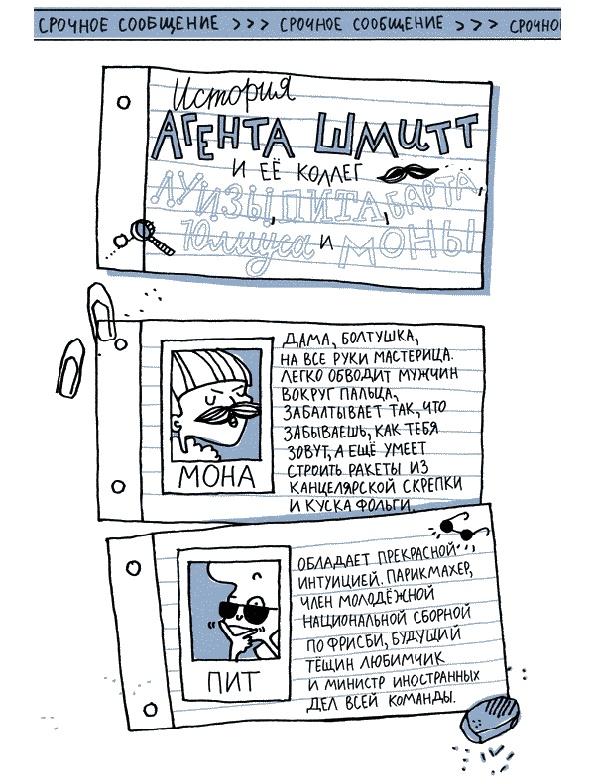 СРОЧНОЕ СООБЩЕНИЕ >>> СРОЧНОЕ СООБЩЕНИЕ >>> СРОЧНО
История
АГЕНТА ШМИТТ
И ЕЁ КОЛЛЕГ
ЛУИЗЫ, ПИТА, БАРТА,
Юлиуса и МОНЫ
ДАМА, БОЛТУШКА,
НА ВСЕ РУКИ МАСТЕРИЦА.
ЛЕГКО ОБВОДИТ МУЖЧИН
ВОКРУГ ПАЛЬЦА,
ЗАБАЛТЫВАЕТ ТАК, ЧТО
ЗАБЫВАЕШЬ, КАК ТЕБЯ
ЗОВУТ, А ЕЩЁ УМЕЕТ
СТРОИТЬ РАКЕТЫ ИЗ
КАНЦЕЛЯРСКОЙ СКРЕПКИ
И КУСКА ФОЛЬГИ.
МОНА
ОБЛАДАЕТ ПРЕКРАСНОЙ
ИНТУИЦИЕЙ. ПАРИКМАХЕР,
ЧЛЕН МОЛОДЁЖНОЙ
НАЦИОНАЛЬНОЙ СБОРНОЙ
ПО ФРИСБИ, БУДУЩИЙ
ТЁЩИН ЛЮБИМЧИК
И МИНИСТР ИНОСТРАННЫХ
ДЕЛ ВСЕЙ КОМАНДЫ.
ПИТ